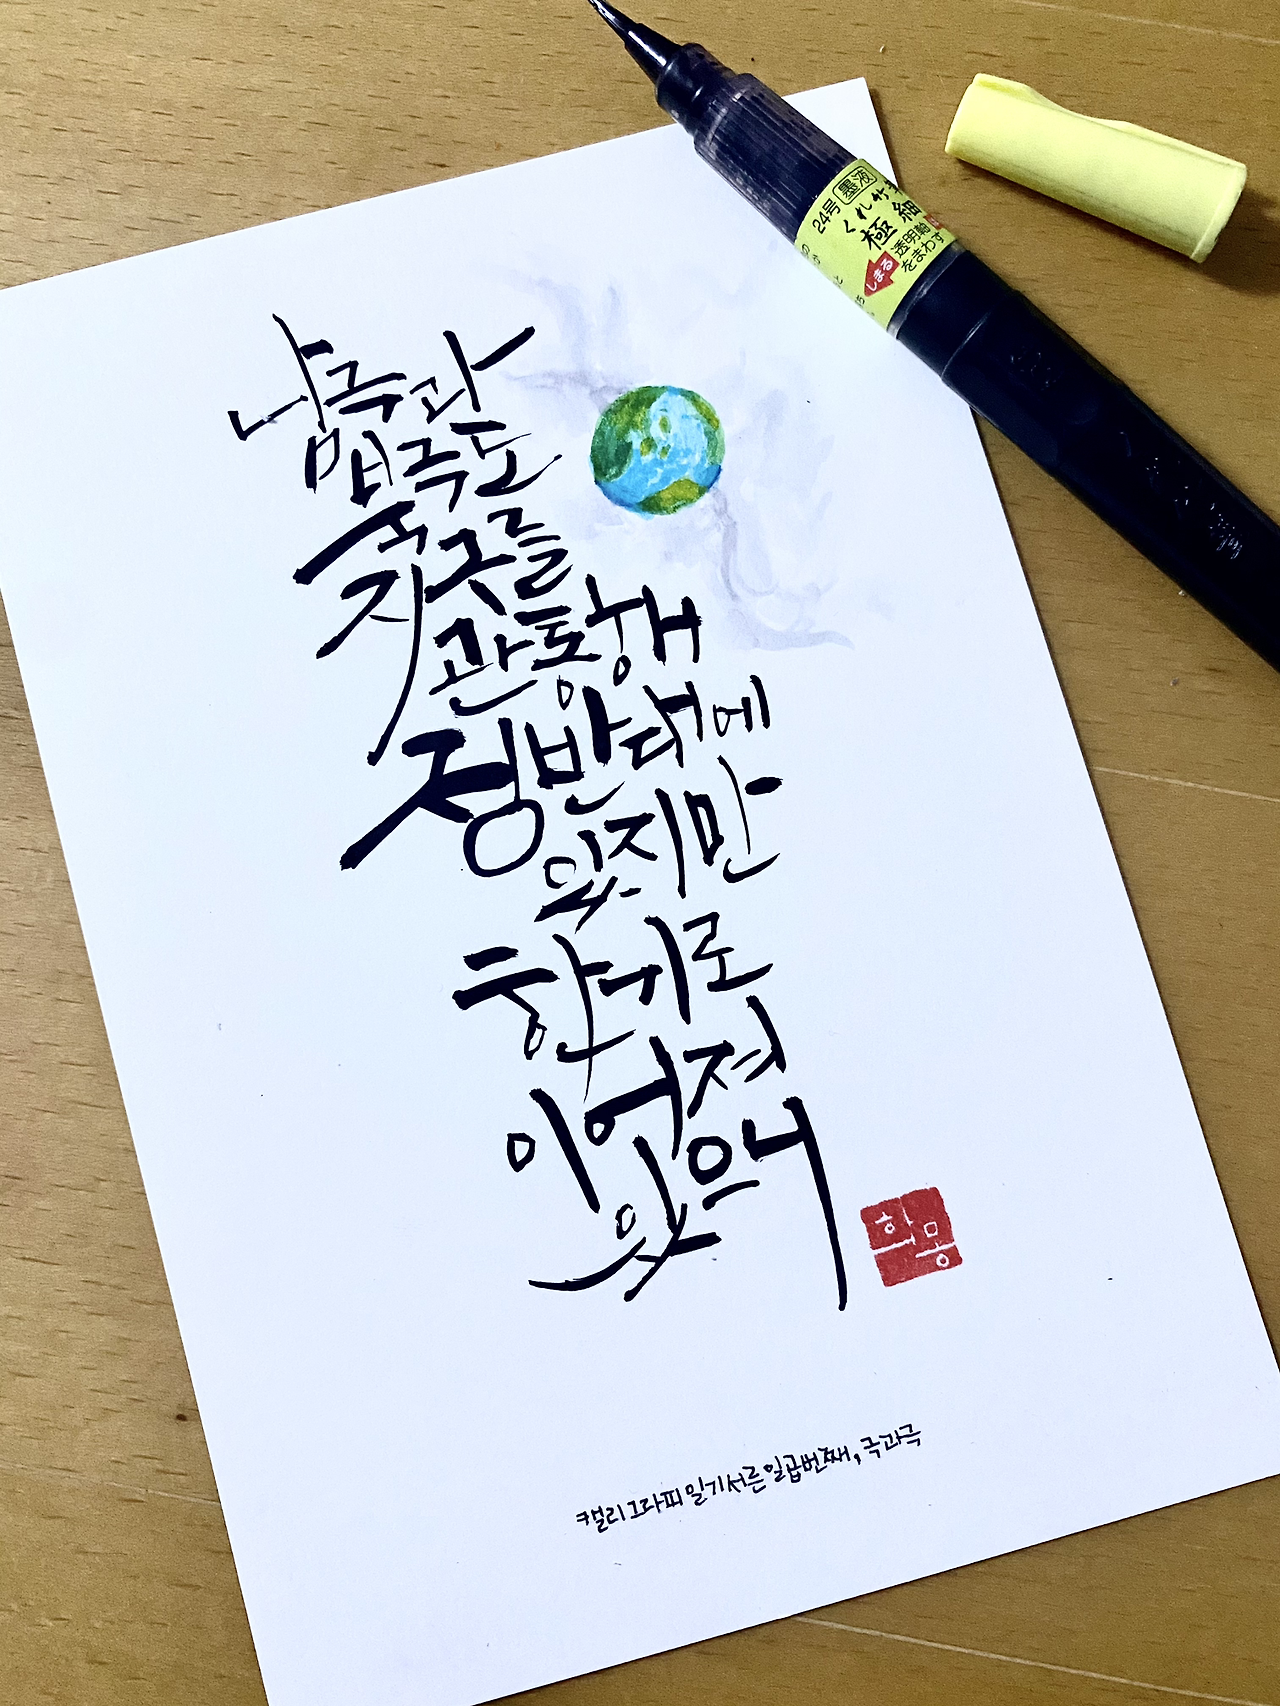 남극과
북극도
지구를
관통해
정반대에
있지만
한기로
이어져
있으니
화몽
캘리그라피 일기 서른일곱번째, 극과극
24号 墨液
くれ竹
極細
透明軸
をまわす
しまる